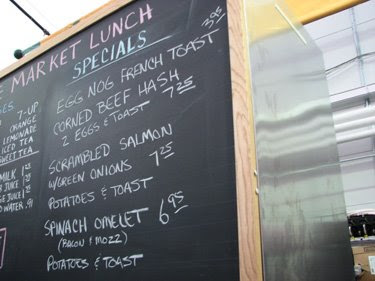 MARKET LUNCH
SPECIALS
EGG NOG FRENCH TOAST 3.95
CORNED BEEF HASH 7.25
2 EGGS & TOAST
SCRAMBLED SALMON
W/GREEN ONIONS 7.25
POTATOES & TOAST
SPINACH OMELET 6.95
(BACON & MOZZ)
POTATOES & TOAST
7-UP
ORANGE
LEMONADE
ICED TEA
SWEET TEA
MILK
JUICE
JUICE
WATER